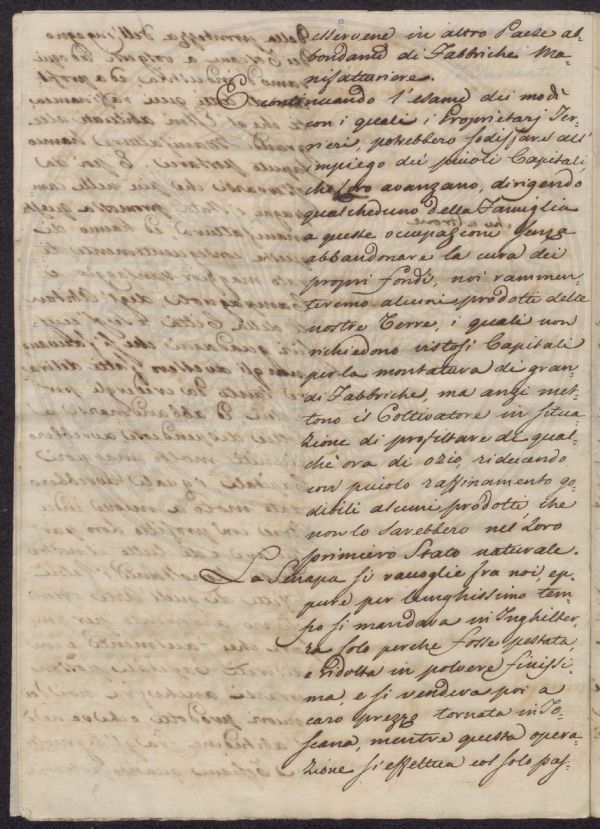 esservene in altro Paese ab-
bondante di Fabbriche Ma-
nifatturiere.
E continuando l'esame dei modi
con i quali i Proprietarj Ter-
rieri, potrebbero sodisfare all'
impiego dei piccoli Capitali,
che loro avanzano, dirigendo
qualcheduno della Famiglia
a queste occupazioni senza
abbandonare la cura dei
propri fondi, noi rammen-
teremo alcuni prodotti delle
nostre Terre, i quali non
richiedono vistosi Capitali
per la montatura di gran
di Fabbriche, ma anzi met-
tono il Coltivatore in situa-
zione di profittare di qual-
che ora di ozio, riducendo
con piccolo raffinamento go-
dibili alcuni prodotti, che
non lo sarebbero nel loro
primiero Stato naturale.
La Senapa si raccoglie fra noi, ep-
pure per lunghissimo tem-
po si mandava in Inghilter-
ra solo perche fosse pestata,
e ridotta in polvere finissi-
ma, e si vendeva poi a
caro prezzo tornata in To-
scana, mentre questa opera-
zione si effettua col solo pas-